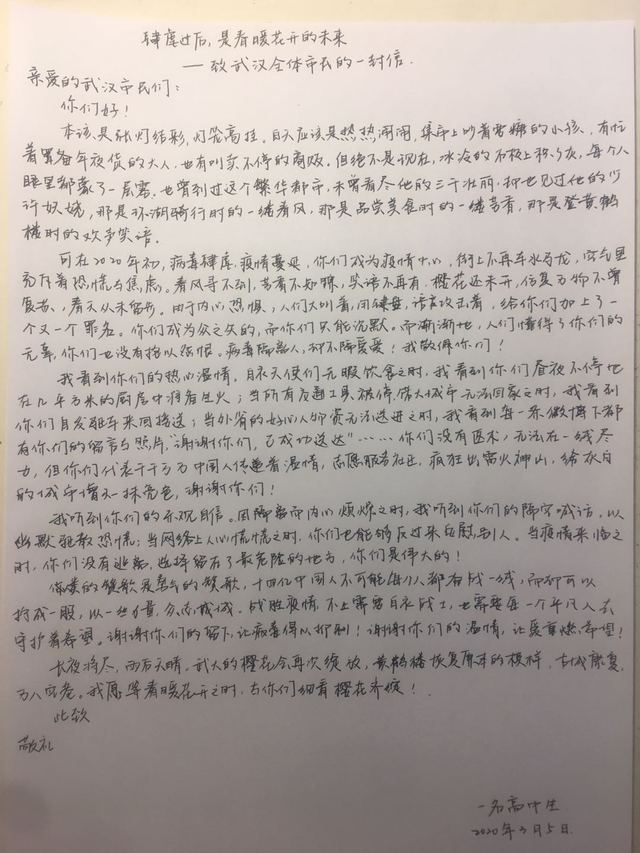 肆虐过后,是春暖花开的未来
——致武汉全体市民的一封信.
亲爱的武汉市民们:
你们好!
本该是张灯结彩,灯笼高挂。白天应该是热热闹闹,集市上吵着要糖的小孩,有忙
着置备年夜货的大人,也有叫卖不停的商贩。但绝不是现在,冰冷的石板上积了灰,每个人
眼里都蒙了一层雾。也曾到过这个繁华都市,未曾看尽他的三千壮丽,却也见过他的少
许妖娆,那是环湖骑行时的一缕春风,那是品尝美食时的一缕香,那是登黄鹤
楼时的欢声笑语。
可在2020年初,病毒肆虐,疫情蔓延,你们成为疫情中心,街上不再车水马龙,空气里
充斥着恐慌与焦虑。春风寻不到,笑语不再有,樱花还未开,万物不曾
复苏,春天从未留步。由于内心恐惧,人们大叫着,闭键盘,语言攻击着,给你们加上了一
个又一个罪名。你们成为众之矢的,而你们只能沉默。而渐渐地,人们懂得了你们的
无辜,你们也没有抱以怨恨。病毒隔离人,却不隔离爱!我敬佩你们!
我看到你们的热心温情。白衣天使们无暇饮食之时,我看到你们昼夜不停地
在几平方米的厨房中洞着生火;当所有交通工具被停,偌大城市无法回家之时,我看到
你们自发驱车来回接送;当外省的好心人物资无法送进之时,我看到每一条微博下都
有你们的留言与照片“谢谢你们,已成功送达”……你们没有医术,无法在一线尽
力,但你们代表千千万万中国人传递着温情,志愿服务社区,疯狂出雷火神山,给灰白
的城市增添一抹亮色,谢谢你们!
我听到你们的乐观自信。因隔离而内心烦燥之时,我听到你们的隔窗喊话,以
幽默驱散恐慌;当网络上人心慌慌之时,你们也能够反过来安慰别人。当疫情来临之
时,你们没有逃离,选择留在了最危险的地方,你们是伟大的!
的赞歌是勇气的赞歌,十四亿中国人不可能每个人都有战一线,而却可以
拧成一股,以一丝力量,众志成城。战胜疫情,不止需要白衣战士,也需要每一个平凡人去
守护着希望。谢谢你们的留下,让病毒得以抑制!谢谢你们的温情,让爱重燃希望!
长夜将尽,雨后天晴。武大的樱花会再次绽放,黄鹤楼恢复原本的模样,古城康复,
万人空巷。我愿等春暖花开之时,与你们细看樱花未绽!
此致
敬礼
一名高中生
2020年3月5日.